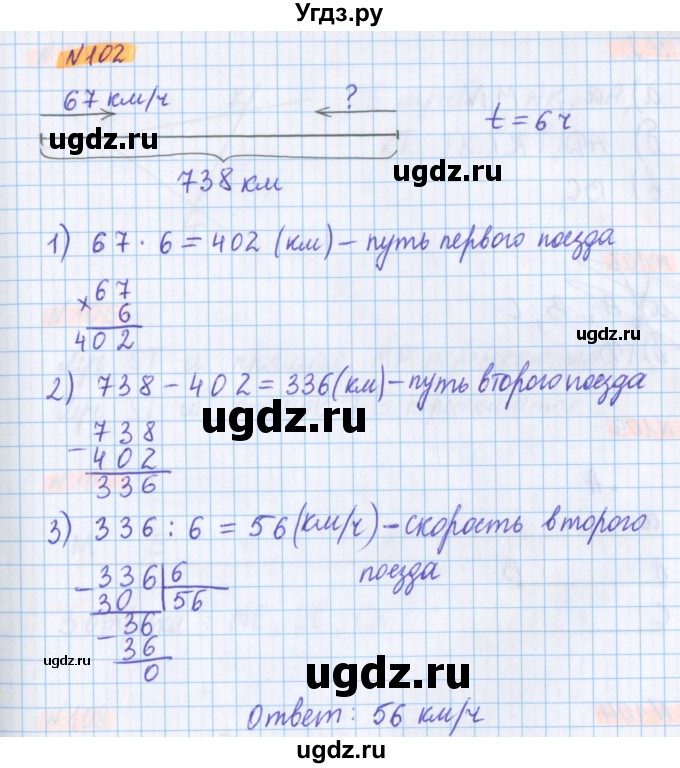 Угдз.ру
N102
67 км/ч ?
ugdz.ru
t = 6 ч
ugdz.ru
738 км
1) 67 · 6 = 402 (км) – путь первого поезда
× 67
6
ugdz.ru
402
2) 738 – 402 = 336 (км) – путь второго поезда
ugdz.ru
– 738
402
336
3) 336 : 6 = 56 (км/ч) – скорость второго
поезда
– 336 | 6
30 | 56
– 36
36
ugdz.ru
ugdz.ru
0
ugdz.ru
Ответ: 56 км/ч
ugdz.ru